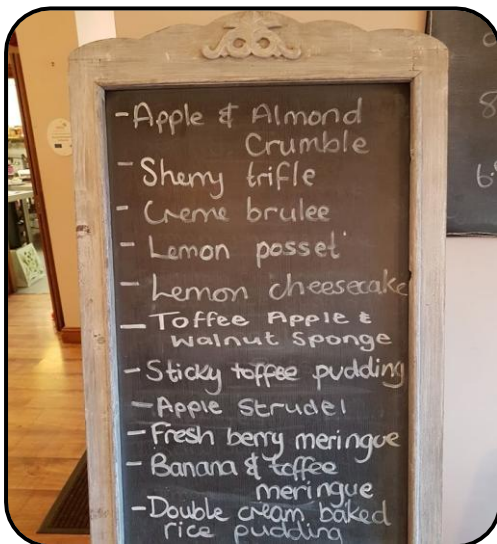 -Apple & Almond
Crumble
- Sherry trifle
- Creme brulee
- Lemon posset
- Lemon cheesecake
- Toffee Apple &
Walnut Sponge
- Sticky toffee pudding
- Apple Strudel
- Fresh berry meringue
- Banana & toffee
meringue
- Double cream baked
rice pudding